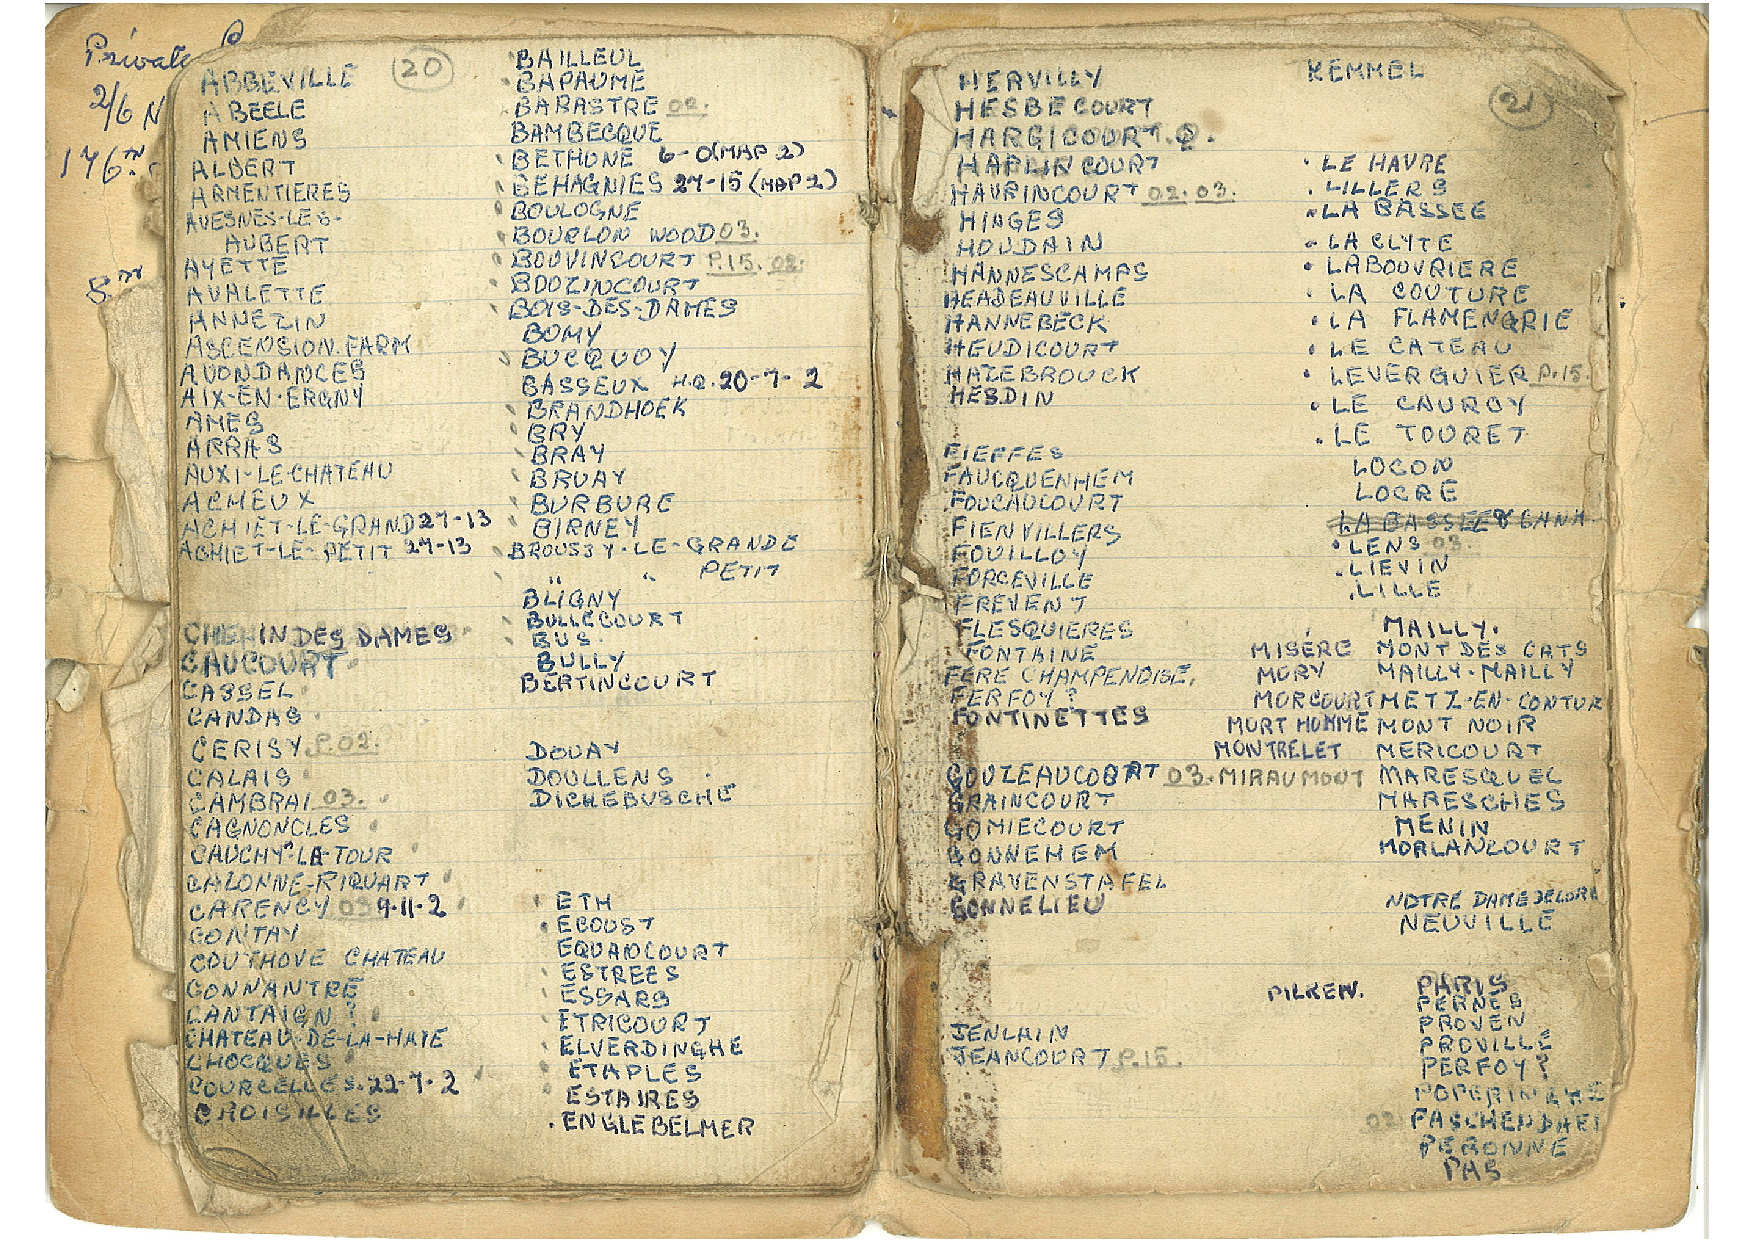 Private
2/6 N
176TH
5TH
20
ABBEVILLE
ABEELE
AMIENS
ALBERT
ARMENTIERES
AVESNES-LES-
AUBERT
AYETTE
AVALETTE
ANNEZIN
ASCENSION. FARM
AVONDANCES
AIX-EN-ERGNY
AMES
ARRAS
AUXI-LE-CHATEAU
ACHEUX
ACHIET-LE-GRAND 27-13
ACHIET-LE-PETIT 27-13
CHEMIN DES DAMES
CAUCOURT
CASSEL
CANDAS
CERISY P.02.
CALAIS
CAMBRAI 03.
CAGNONCLES
CAUCHY-LA-TOUR
CALONNE-RIQUART
CARENCY 03 9-11-2
CONTAY
COUTHOVE CHATEAU
CONNANTRE
CANTAIGN?
CHATEAU-DE-LA-HAIE
CHOCQUES
COURCELLES. 22-7-2
CROISILLES
BAILLEUL
BAPAUME
BARASTRE 02.
BAMBECQUE
BETHUNE 6-0 (MAP 2)
BEHAGNIES 27-15 (MAP 2)
BOULOGNE
BOURLON WOOD 03.
BOUVINCOURT P.15. 02.
BOUZINCOURT
BOIS-DES-DAMES
BOMY
BUCQUOY
BASSEUX H.Q. 20-7-2
BRANDHOEK
BRY
BRAY
BRUAY
BURBURE
BIRNEY
BROUSSY-LE-GRANDE
" " PETIT
BLIGNY
BULLECOURT
BUS
BULLY
BERTINCOURT
DOUAY
DOULLENS
DICHEBUSCHE
ETH
ECOUST
EQUANCOURT
ESTREES
ESSARS
ETRICOURT
ELVERDINGHE
ETAPLES
ESTAIRES
ENGLEBELMER
HERVILLY
HESBECOURT
HARGICOURT. Q.
HAPLINCOURT
HAVRINCOURT 02. 03.
HINGES
HOUDAIN
HANNESCAMPS
HEADEAUVILLE
HANNEBECK
HEUDICOURT
HAZEBROUCK
HESDIN
FIEFFES
FAUCQUENHEM
FOUCAUCOURT
FIENVILLERS
FOUILLOY
FORCEVILLE
FREVENT
FLESQUIERES
FONTAINE
FERE CHAMPENOISE.
FERFOY?
FONTINETTES
GOUZEAUCOURT 03.
GRAINCOURT
GOMIECOURT
GONNEHEM
GRAVENSTAFEL
GONNELIEU
JENLAIN
JEANCOURT P.15.
KEMMEL
21
LE HAVRE
LILLERS
LA BASSEE
LA CLYTE
LABOUVRIERE
LA COUTURE
LA FLAMENGRIE
LE CATEAU
LEVERGUIER P.15.
LE CAUROY
LE TOURET
LOCON
LOCRE
LA BASSEE
LENS 03.
LIEVIN
LILLE
MAILLY.
MISÈRE MONT DES CATS
MORY MAILLY-MAILLY
MORCOURT METZ-EN-CONTUR
MORT HOMME MONT NOIR
MONTRELET MERICOURT
MIRAUMONT MARESQUEL
MARESCHES
MENIN
MORLANCOURT
NOTRE DAME DE LOR
NEUVILLE
PILKEN. PARIS
PERNES
PROVEN
PROVILLE
PERFOY?
POPERINGHE
02 PASCHENDAEL
PERONNE
PAS